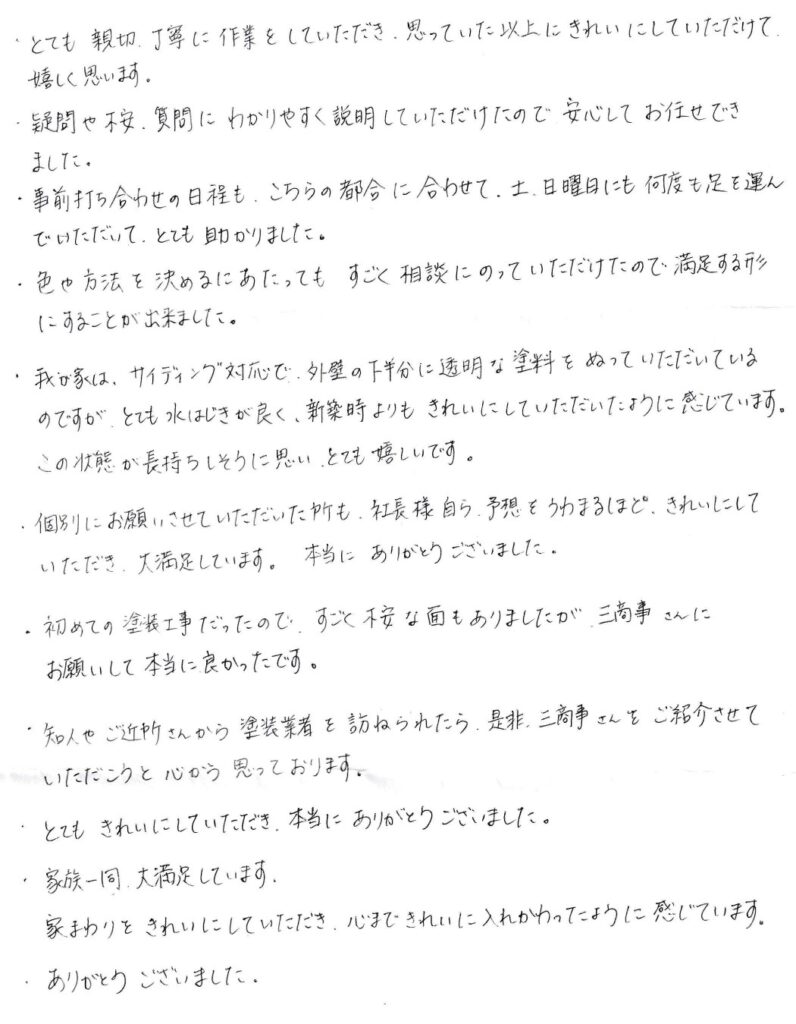 ・とても 親切、丁寧に 作業をしていただき、思っていた以上にきれいにしていただけて、
嬉しく思います。
・疑問や不安、質問に わかりやすく説明していただけたので 安心して お任せでき
ました。
・事前打ち合わせの日程も、こちらの都合に合わせて、土、日曜日にも何度も足を運ん
でいただいて、とても助かりました。
・色や方法を決めるにあたっても すごく相談にのっていただけたので満足する形
にすることが出来ました。
・我が家は、サイディング対応で、外壁の下半分に透明な塗料をぬっていただいている
のですが、とても水はじきが良く、新築時よりも きれいにしていただいたように感じています。
この状態が長持ちしそうに思い、とても嬉しいです。
・個別にお願いさせていただいた所も、社長様自ら、予想をうわまるほど、きれいにして
いただき、大満足しています。 本当に ありがとうございました。
・初めての塗装工事だったので、すごく不安な面もありましたが、三商事さんに
お願いして本当に良かったです。
・知人やご近所さんから塗装業者を訪ねられたら、是非、三商事さんをご紹介させて
いただこうと 心から 思っております。
・とても きれいにしていただき、本当に ありがとうございました。
・家族一同、大満足しています。
家まわりを きれいにしていただき、心まできれいに入れかわったように感じています。
・ありがとう ございました。